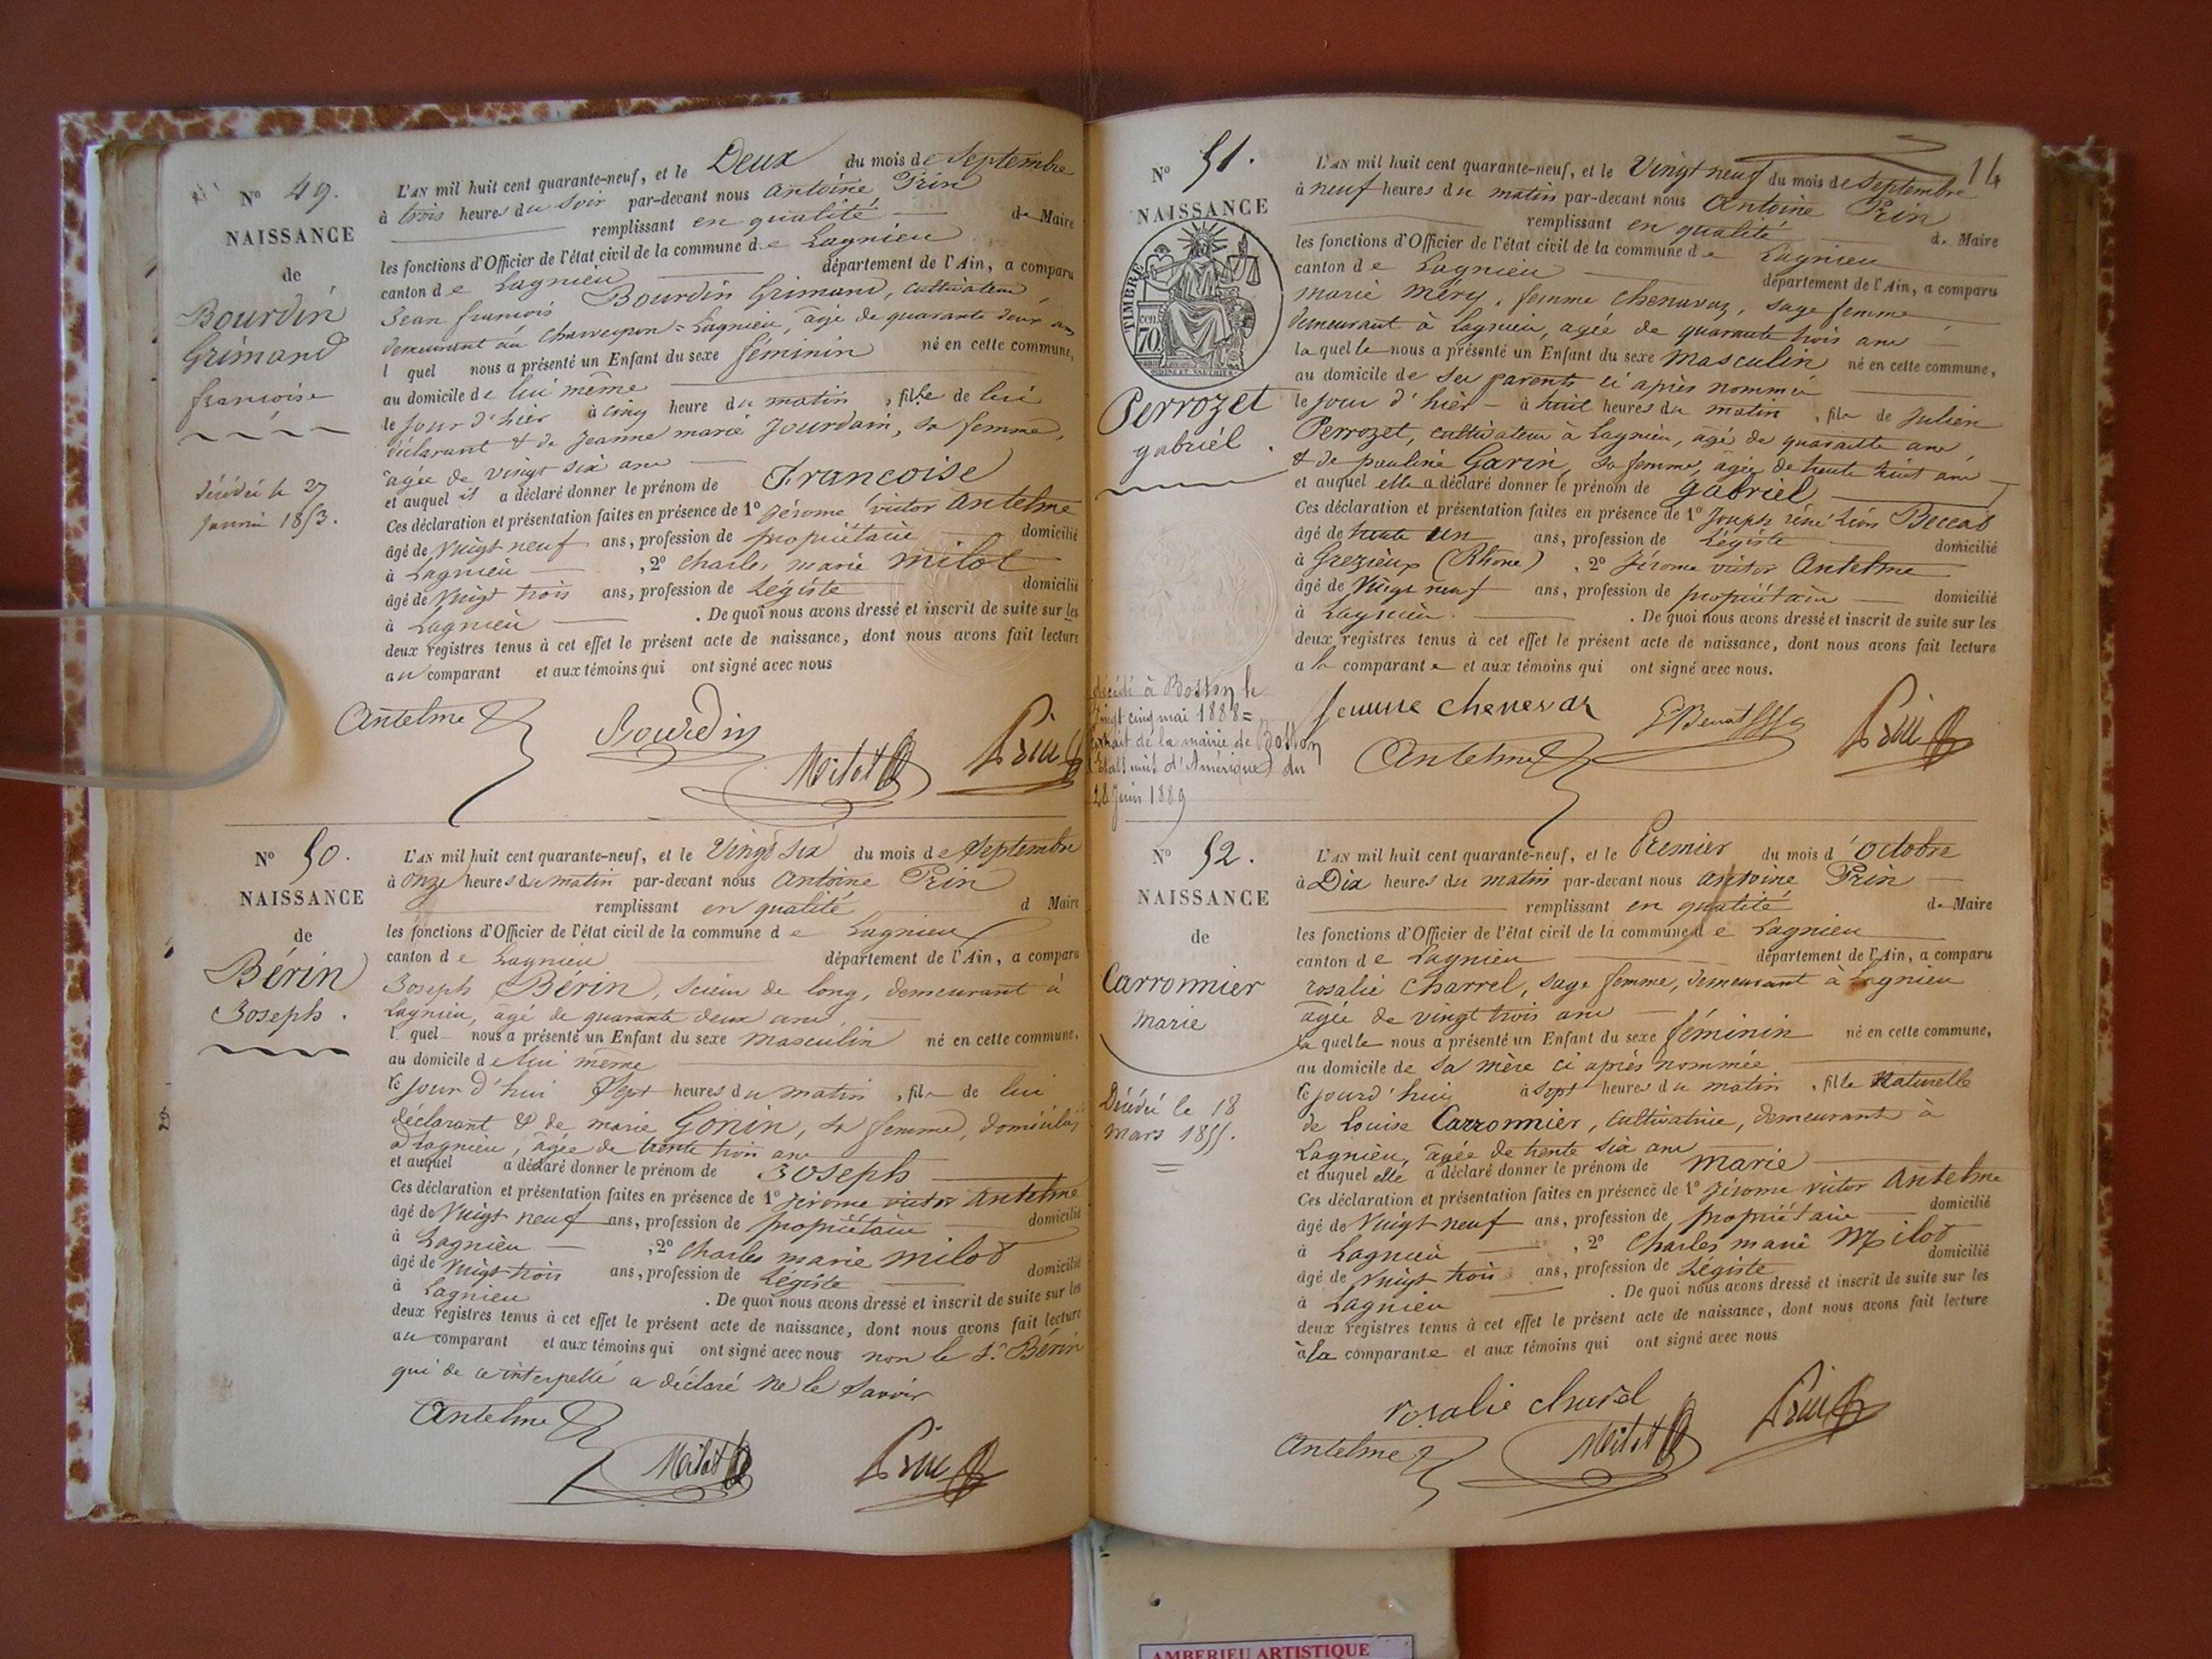 N° 49.
NAISSANCE
de
Bourdin
Grimand
francoise
décédée le 27
janvier 1853.
L'AN mil huit cent quarante-neuf, et le Deux du mois de Septembre
à trois heures du soir par-devant nous antoine Prin
remplissant en qualité de Maire
les fonctions d'Officier de l'état civil de la commune de Lagnieu
canton de Lagnieu département de l'Ain, a comparu
Jean francois Bourdin Grimand, cultivateur
demeurant au = Lagnieu, âgé de quarante deux ans
lequel nous a présenté un Enfant du sexe féminin né en cette commune,
au domicile de lui même
le jour d'hier à cinq heure du matin, fille de lui
déclarant & de Jeanne marie Jourdain, sa femme,
âgée de vingt six ans
et auquel il a déclaré donner le prénom de Francoise
Ces déclaration et présentation faites en présence de 1° Jérome victor Antelme
âgé de Vingt neuf ans, profession de propriétaire domicilié
à Lagnieu, 2° Charles marie milot
âgé de Vingt trois ans, profession de Légiste domicilié
à Lagnieu. De quoi nous avons dressé et inscrit de suite sur les
deux registres tenus à cet effet le présent acte de naissance, dont nous avons fait lecture
au comparant et aux témoins qui ont signé avec nous
Antelme Bourdin Milot Prin
N° 50.
NAISSANCE
de
Bérin
Joseph.
L'AN mil huit cent quarante-neuf, et le Vingt six du mois de Septembre
à onze heures du matin par-devant nous Antoine Prin
remplissant en qualité d Maire
les fonctions d'Officier de l'état civil de la commune de Lagnieu
canton de Lagnieu département de l'Ain, a comparu
Joseph Bérin, scieur de long, demeurant à
Lagnieu, âgé de quarante deux ans
lequel nous a présenté un Enfant du sexe masculin né en cette commune,
au domicile de lui même
le jour d'hui Sept heures du matin, fils de lui
déclarant & de marie Gonin, sa femme, domiciliés
à Lagnieu, âgée de trente trois ans
et auquel a déclaré donner le prénom de Joseph
Ces déclaration et présentation faites en présence de 1° Jérome victor Antelme
âgé de Vingt neuf ans, profession de propriétaire domicilié
à Lagnieu, 2° Charles marie milot
âgé de Vingt trois ans, profession de Légiste domicilié
à Lagnieu. De quoi nous avons dressé et inscrit de suite sur les
deux registres tenus à cet effet le présent acte de naissance, dont nous avons fait lecture
au comparant et aux témoins qui ont signé avec nous non le Sr Bérin
qui de ce interpellé a déclaré ne le savoir
Antelme Milot Prin
14
N° 51.
NAISSANCE
TIMBRE
CEN.
70
Perrozet
gabriél.
décédé à Boston le
vingt cinq mai 1888=
extrait de la mairie de Boston
(états unis d'Amérique) du
28 Juin 1889
L'AN mil huit cent quarante-neuf, et le Vingt neuf du mois de Septembre
à neuf heures du matin par-devant nous Antoine Prin
remplissant en qualité de Maire
les fonctions d'Officier de l'état civil de la commune de Lagnieu
canton de Lagnieu département de l'Ain, a comparu
marie méry, femme chenavaz, sage femme,
demeurant à Lagnieu, agée de quarante trois ans
laquelle nous a présenté un Enfant du sexe masculin né en cette commune,
au domicile de ses parents ci après nommés
le jour d'hier à huit heures du matin, fils de Julien
Perrozet, cultivateur à Lagnieu, âgé de quarante ans
& de pauline Garin, sa femme, âgée de trente huit ans
et auquel elle a déclaré donner le prénom de gabriel
Ces déclaration et présentation faites en présence de 1° Joseph réné Léon
âgé de trente un ans, profession de Légiste domicilié
à Grezieux (Rhône), 2° Jérome victor Antelme
âgé de Vingt neuf ans, profession de propriétaire domicilié
à Lagnieu. De quoi nous avons dressé et inscrit de suite sur les
deux registres tenus à cet effet le présent acte de naissance, dont nous avons fait lecture
a la comparante et aux témoins qui ont signé avec nous.
femme chenevaz
Antelme Prin
N° 52.
NAISSANCE
de
Carronnier
Marie
Décédée le 18
Mars 1855.
L'AN mil huit cent quarante-neuf, et le Premier du mois d'octobre
à Dix heures du matin par-devant nous antoine Prin
remplissant en qualité de Maire
les fonctions d'Officier de l'état civil de la commune de Lagnieu
canton de Lagnieu département de l'Ain, a comparu
rosalie Charrel, sage femme, demeurant à Lagnieu
âgée de vingt trois ans
laquelle nous a présenté un Enfant du sexe féminin né en cette commune,
au domicile de sa mère ci après nommée
le jourd'hui à sept heures du matin, fille Naturelle
de Louise Carronnier, cultivatrice, demeurant à
Lagnieu, âgée de trente six ans
et auquel elle a déclaré donner le prénom de marie
Ces déclaration et présentation faites en présence de 1° Jérome victor Antelme
âgé de Vingt neuf ans, profession de propriétaire domicilié
à Lagnieu, 2° Charles marie Milot
âgé de Vingt trois ans, profession de Légiste domicilié
à Lagnieu. De quoi nous avons dressé et inscrit de suite sur les
deux registres tenus à cet effet le présent acte de naissance, dont nous avons fait lecture
à la comparante et aux témoins qui ont signé avec nous
rosalie charel
Antelme Milot Prin
AMBERIEU ARTISTIQUE